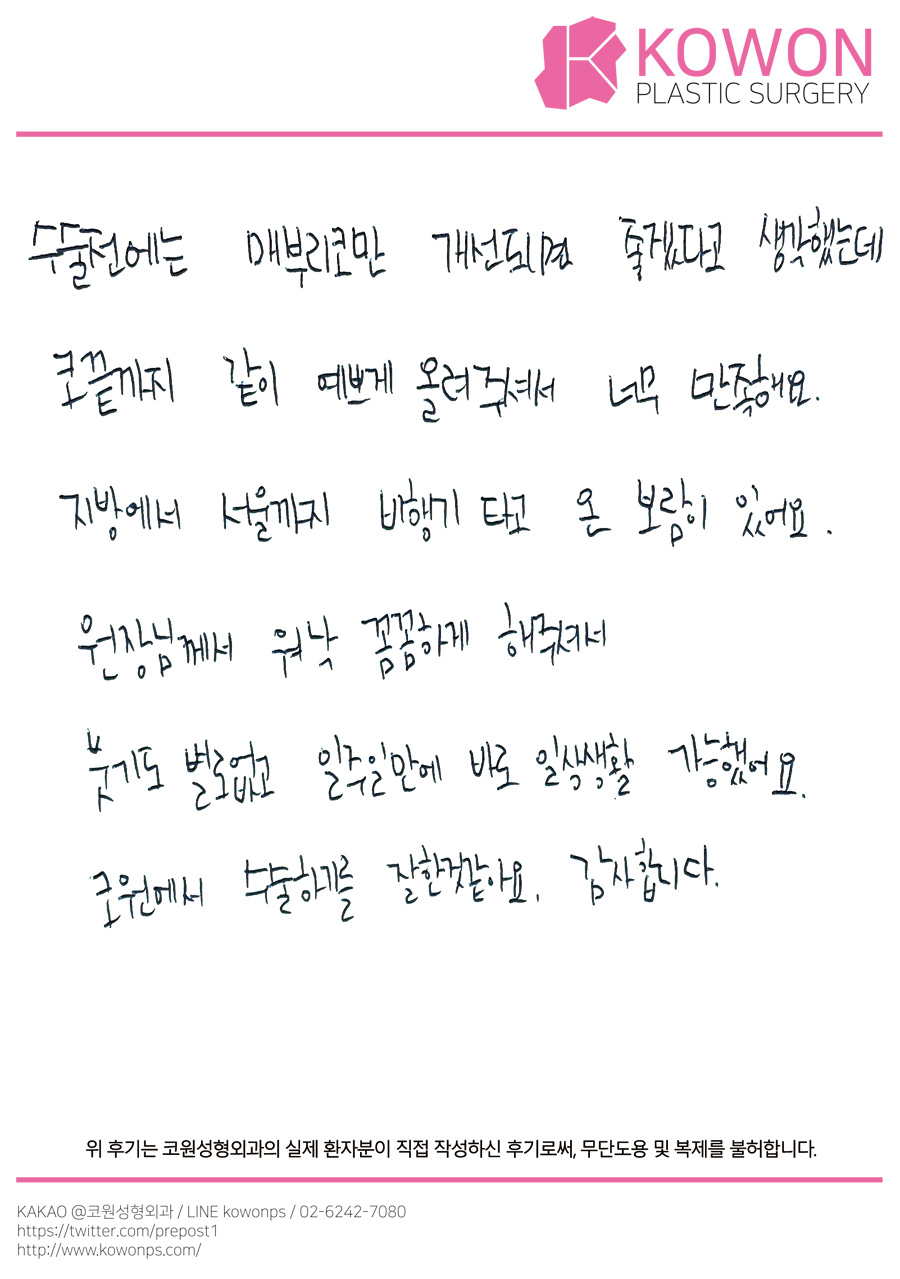 KOWON
PLASTIC SURGERY
수술전에는 매부리코만 개선되면 좋겠다고 생각했는데
코끝까지 같이 예쁘게 올려줘셔서 너무 만족해요.
지방에서 서울까지 비행기 타고 온 보람이 있어요.
원장님께서 워낙 꼼꼼하게 해줘겨서
붓기도 별로없고 일주일만에 바로 일상생활 가능했어요.
코원에서 수술하기를 잘한것같아요. 감사합니다.
위 후기는 코원성형외과의 실제 환자분이 직접 작성하신 후기로써, 무단도용 및 복제를 불허합니다.
KAKAO @코원성형외과 / LINE kowonps / 02-6242-7080
https://twitter.com/prepost1
http://www.kowonps.com/